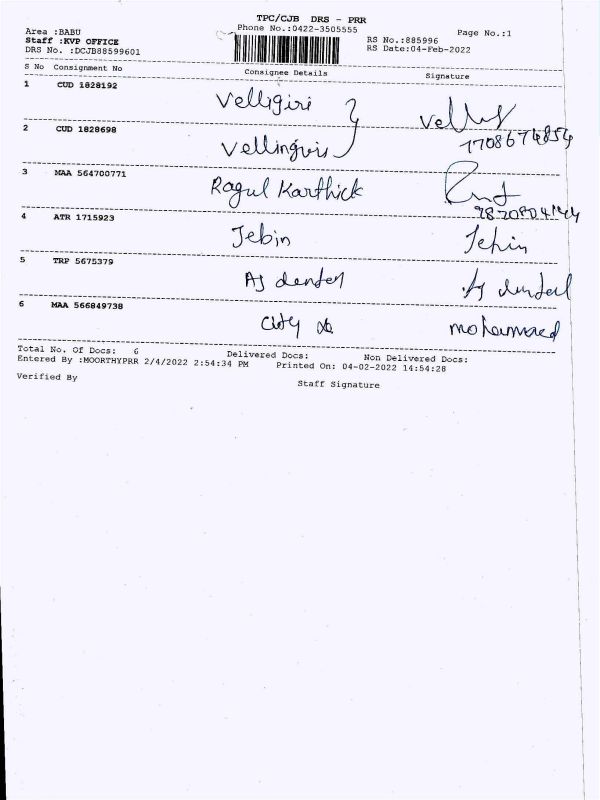 TPC/CJB DRS - PRR
Area :BABU Phone No.:0422-3505555 Page No.:1
Staff :KVP OFFICE RS No.:885996
DRS No. :DCJB88599601 RS Date:04-Feb-2022
S No Consignment No Consignee Details Signature
1 CUD 1828192 Velligiri
2 CUD 1828698
3 MAA 564700771 Ragul Karthick
4 ATR 1715923 Jebin Jebin
5 TRP 5675379 AJ dental AJ dental
6 MAA 566849738 City
Total No. Of Docs: 6 Delivered Docs: Non Delivered Docs:
Entered By :MOORTHYPRR 2/4/2022 2:54:34 PM Printed On: 04-02-2022 14:54:28
Verified By Staff Signature